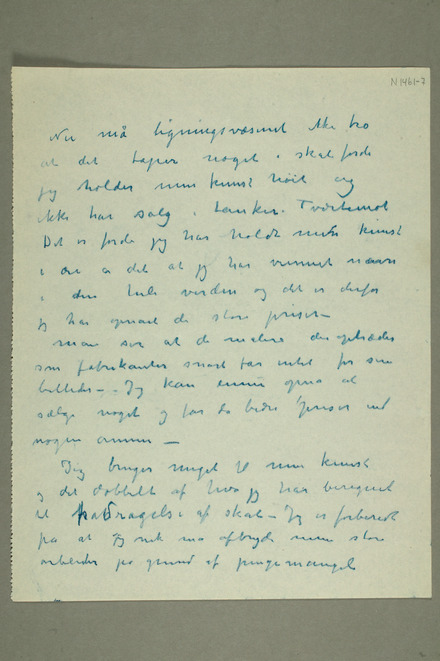 N 1461-7
Nu må ligningsvæsenet ikke tro
at det taper noget i skat fordi
jeg holder min kunst höit og
ikke har salg i tanker. Tvertimot
Det er fordi jeg har holdt min kunst
i ære at jeg har vunnet navn
i den hele verden og det er derfor
jeg har opnået de store priser –
man ser at de malere der optræder
som fabrikanter snart får intet for sine
billeder – Jeg kan ennu opnå at
sælge noget og får da bedre priser end
nogen annen –
Jeg bruger meget til min kunst
og det dobbelt af hva jeg har beregnet
til fradragelse af skat – Jeg er forberedt
på at jeg må afbryde mine store
arbeider på grund af pengemangel